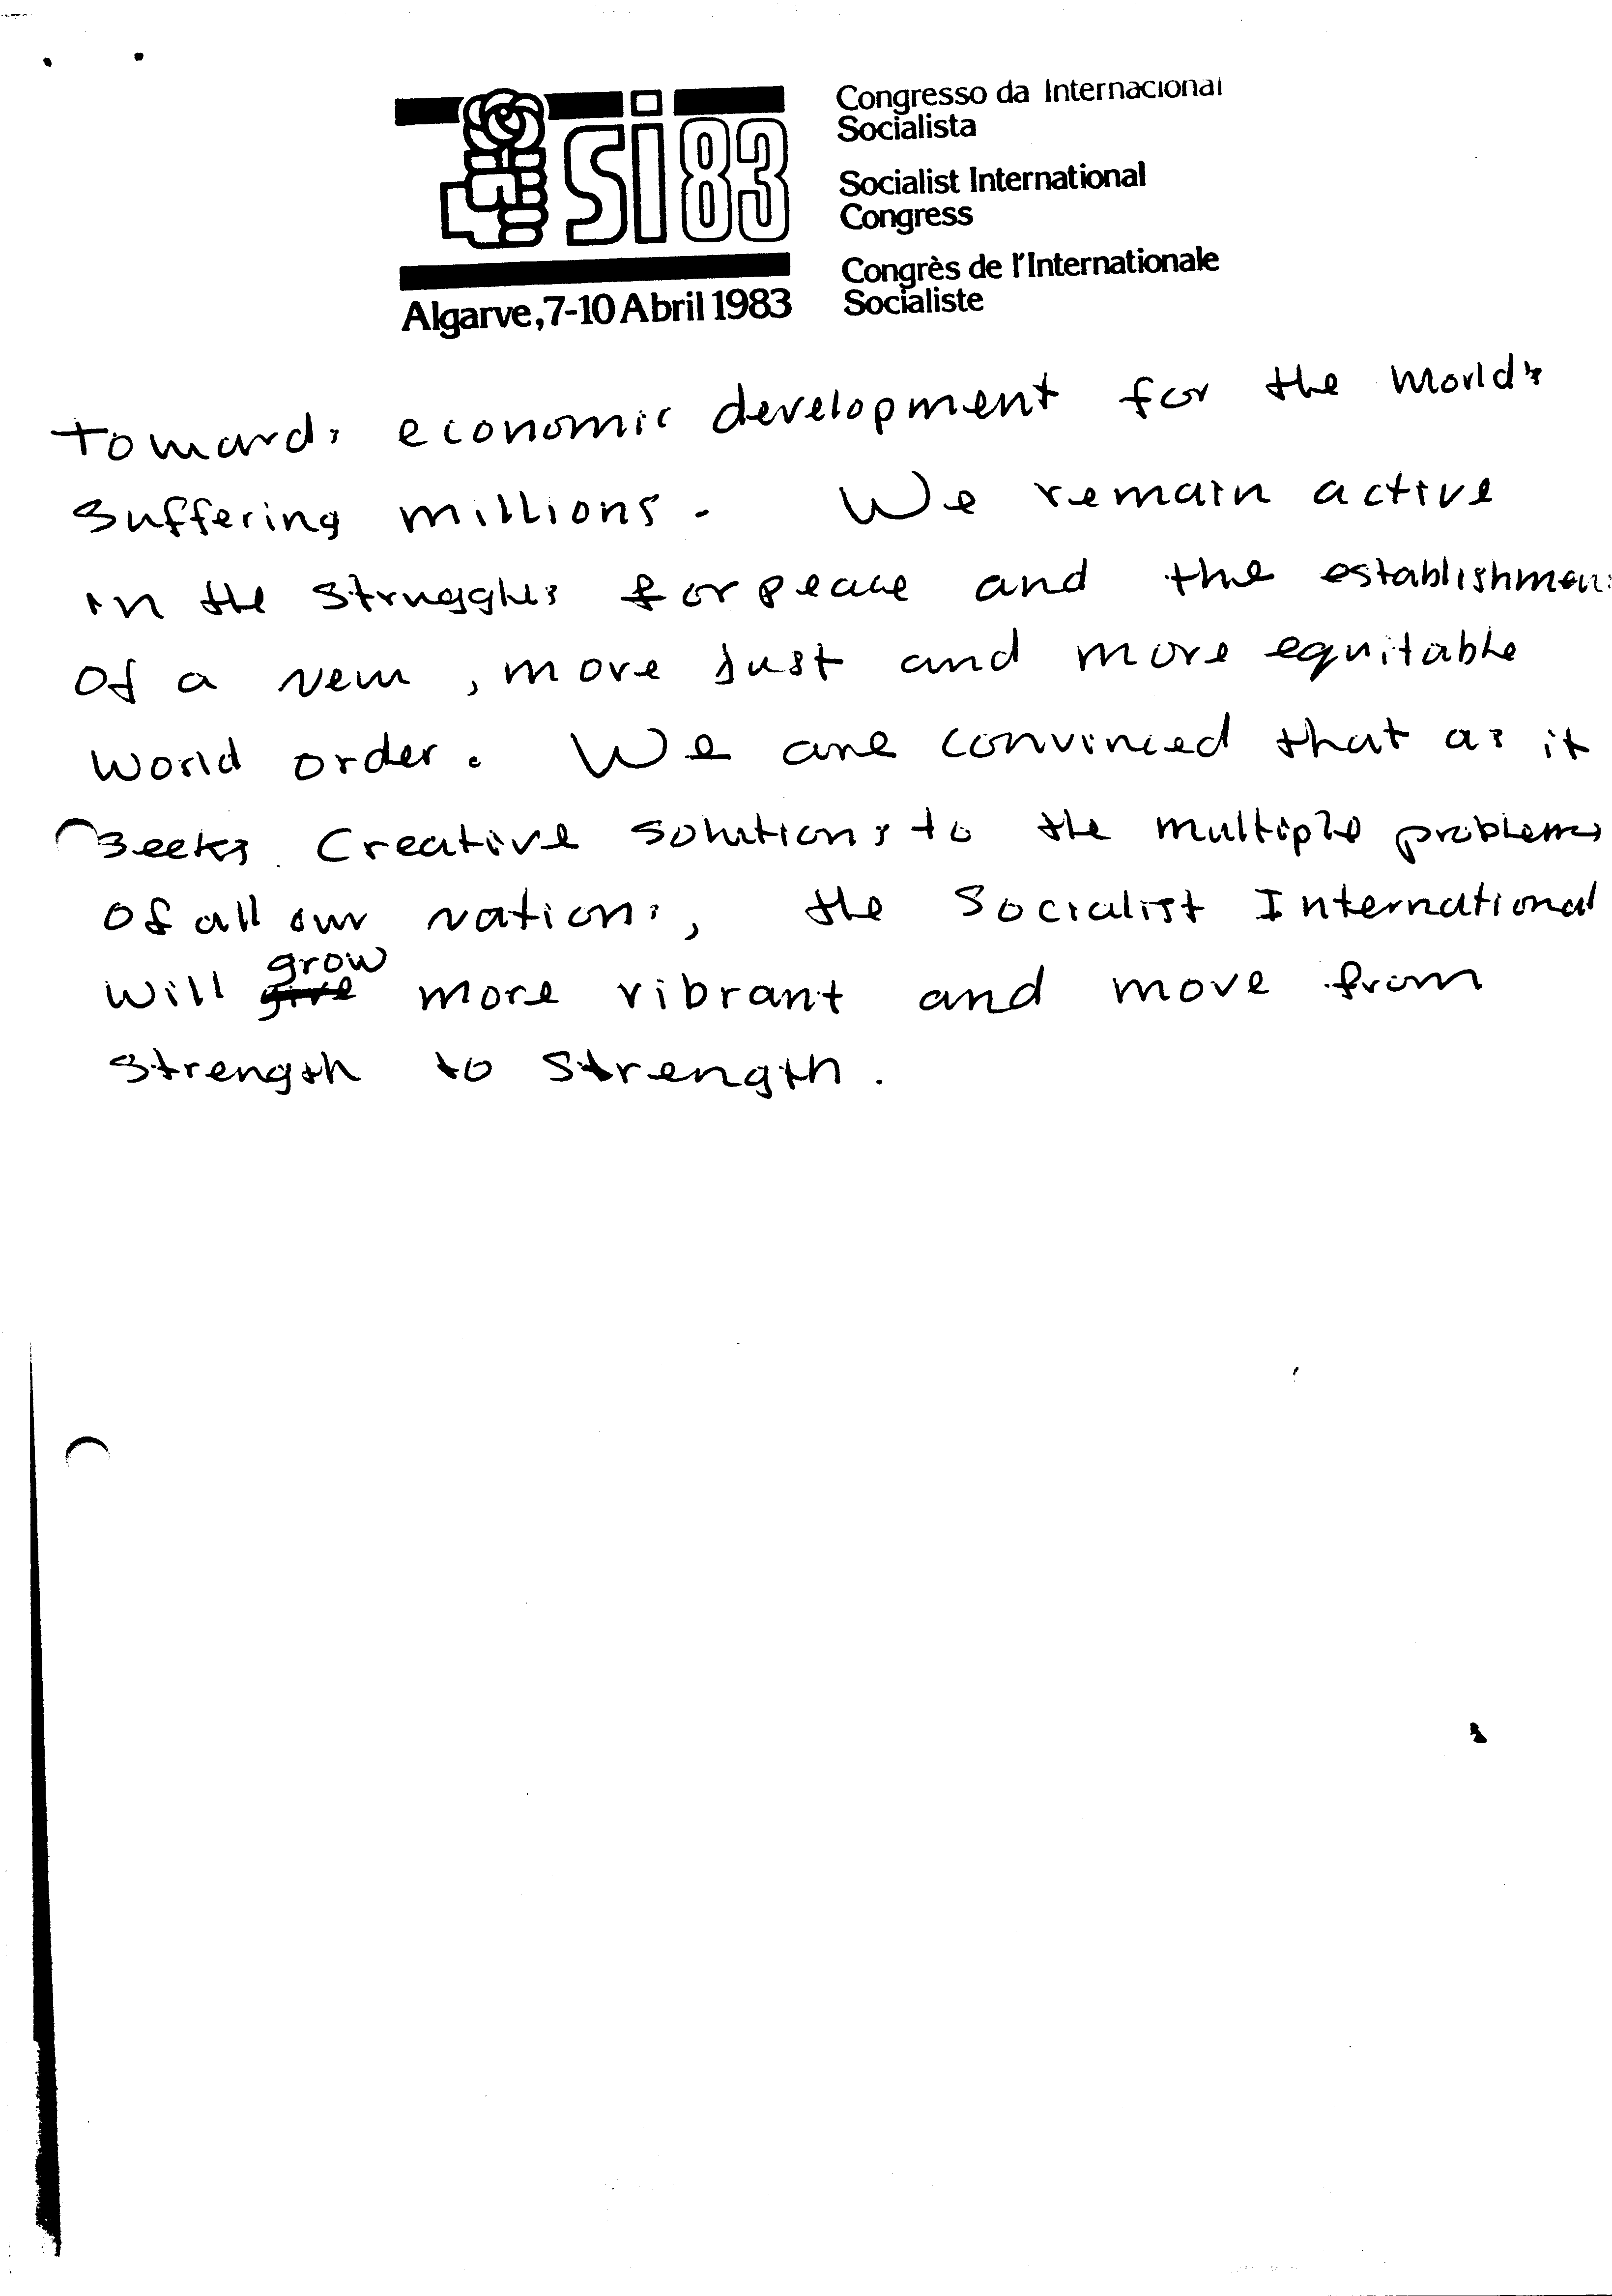 si 83
Algarve, 7-10 Abril 1983
Congresso da Internacional
Socialista
Socialist International
Congress
Congrès de l'Internationale
Socialiste
towards economic development for the world's
suffering millions. We remain active
in the struggles for peace and the establishment
of a new, more just and more equitable
world order. We are convinced that as it
seeks creative solutions to the multiple problems
of all our nations, the Socialist International
grow
will give more vibrant and move from
strength to strength.